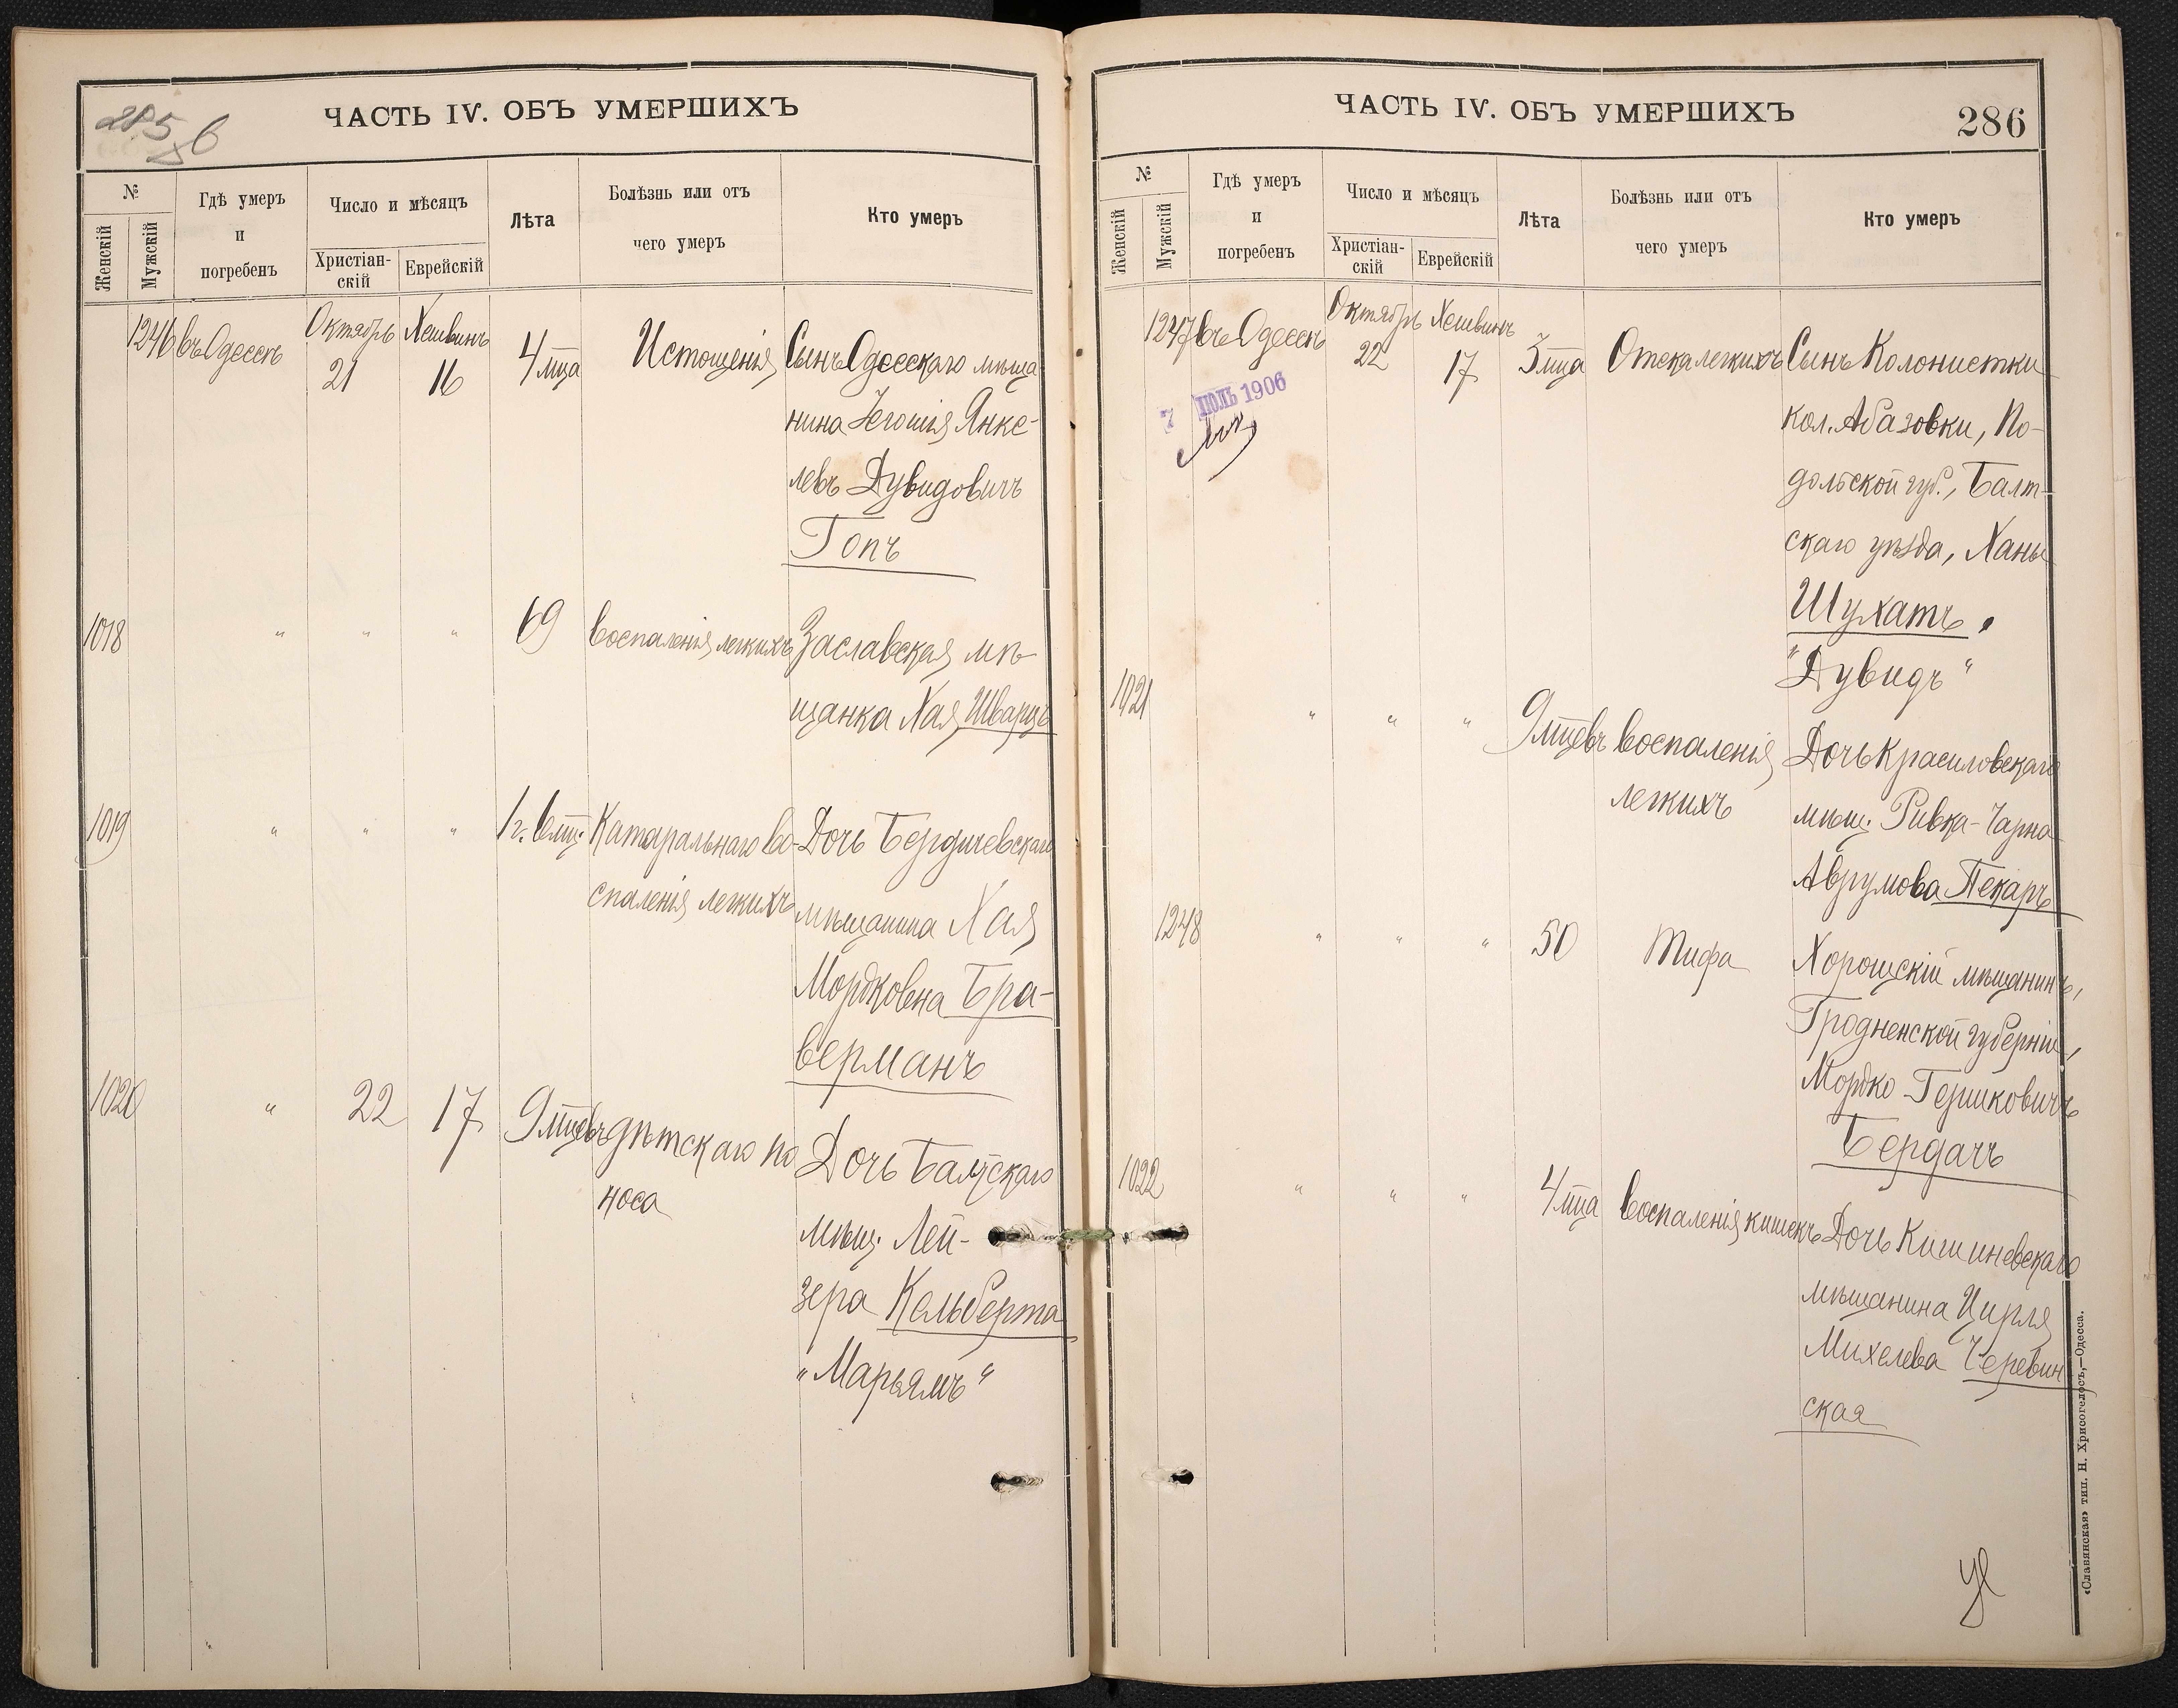 285 об
ЧАСТЬ IV. ОБЪ УМЕРШИХЪ
№
Женскій
Мужскій
Гдѣ умеръ
и
погребенъ
Число и мѣсяцъ
Христіан-
скій
Еврейскій
Лѣта
Болѣзнь или отъ
чего умеръ
Кто умеръ
1246 въ Одессѣ Октябрь 21 Хешвинъ 16 4 мца Истощенія Сынъ Одесскаго мѣща
нина Іегошія Янке-
левъ Дувидовичъ
Гопъ
1018 " " " 69 Воспаленія легкихъ Заславская мѣ-
щанка Хая Шварцъ
1019 " " " 1 г. 6 мц. Катаральнаго во- Дочь Бердичевскаго
спаленія легкихъ мѣщанина Хая
Мордковна Бра-
верманъ
1020 " 22 17 9 мцевъ дѣтскаго по Дочь Балтскаго
носа
мѣщ. Лей-
зера Кельберта
"Марьямъ"
ЧАСТЬ IV. ОБЪ УМЕРШИХЪ
286
№
Женскій
Мужскій
Гдѣ умеръ
и
погребенъ
Число и мѣсяцъ
Христіан-
скій
Еврейскій
Лѣта
Болѣзнь или отъ
чего умеръ
Кто умеръ
1247 въ Одессѣ Октябрь 22 Хешвинъ 17 3 мца Отека легкихъ Сынъ Колонистки
7 ІЮЛЬ 1906
кол. Абазовки, По-
дольской губ., Балт-
скаго уѣзда, Ханы
Шухатъ.
"Дувидъ"
1021 " " " 9 мцевъ воспаленія Дочь Красиловскаго
легкихъ мѣщ. Ривка-Чарна
Аврумова Пекаръ
1248 " " " 50 Тифа Хорощскій мѣщанинъ,
Гродненской губерніи,
Мордко-Гершковичъ
Бердачъ
1022 " " " 4 мца Воспаленія кишекъ Дочь Кишиневскаго
мѣщанина Цирля
Михелева Черевин
ская
«Славянская» тип. Н. Хрисогелосъ,—Одесса.